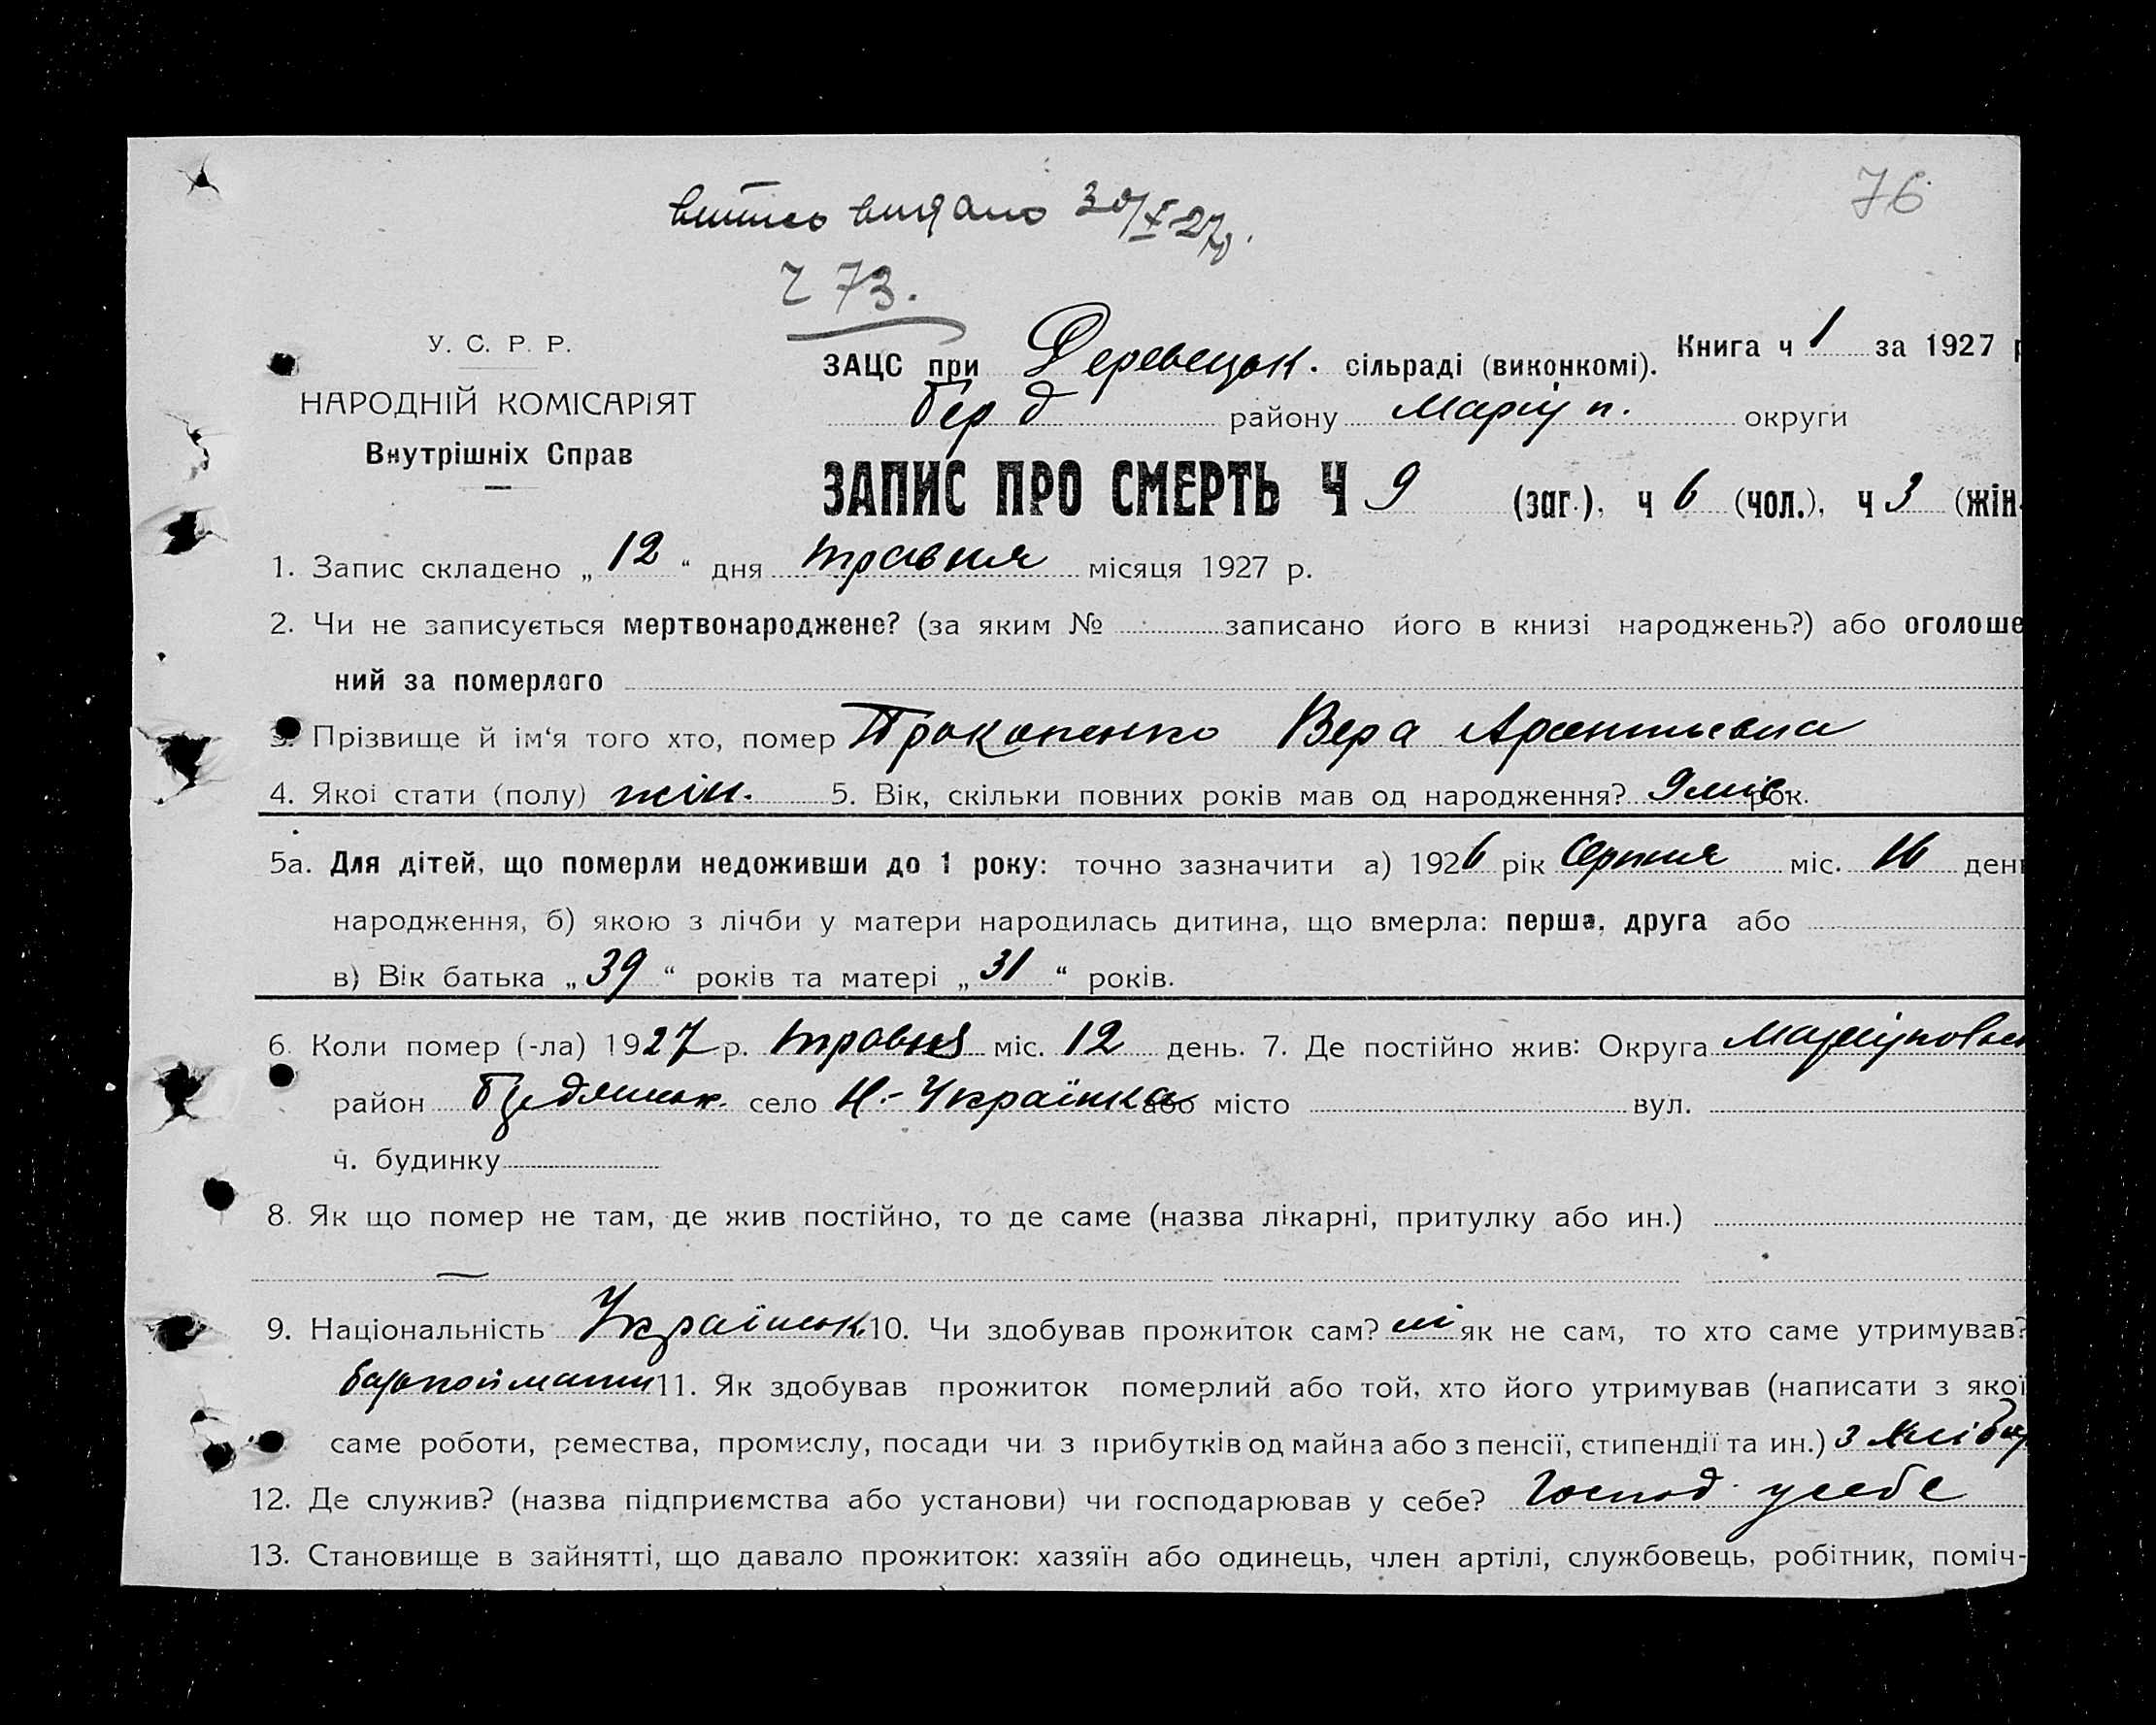 76
витяг видано 30/X 27р.
Ч 73.
У. С. Р. Р.
НАРОДНІЙ КОМІСАРІЯТ
Внутрішніх Справ
ЗАЦС при Деревецьк. сільраді (виконкомі). Книга ч 1 за 1927 р
Берд району Маріуп. округи
ЗАПИС ПРО СМЕРТЬ Ч 9 (заг.), ч 6 (чол.), ч 3 (жін.
1. Запис складено „12“ дня травня місяця 1927 р.
2. Чи не записується мертвонароджене? (за яким № записано його в книзі народжень?) або оголоше
ний за померлого
3. Прізвище й ім‘я того хто, помер Прокопенко Вера
4. Якої стати (полу) жін. 5. Вік, скільки повних років мав од народження? 9 міс рок.
5а. Для дітей, що померли недоживши до 1 року: точно зазначити а) 1926 рік Серпня міс. 16 день
народження, б) якою з лічби у матери народилась дитина, що вмерла: перша, друга або
в) Вік батька „39“ років та матері „31“ років.
6. Коли помер (-ла) 1927 р. травня міс. 12 день. 7. Де постійно жив: Округа
район село Н.-Українка або місто вул.
ч. будинку
8. Як що помер не там, де жив постійно, то де саме (назва лікарні, притулку або ин.)
9. Національність 10. Чи здобував прожиток сам? ні як не сам, то хто саме утримував?
11. Як здобував прожиток померлий або той, хто його утримував (написати з якої
саме роботи, ремества, промислу, посади чи з прибутків од майна або з пенсії, стипендії та ин.) з
12. Де служив? (назва підприємства або установи) чи господарював у себе? Господ. у себе
13. Становище в зайнятті, що давало прожиток: хазяїн або одинець, член артілі, службовець, робітник, поміч-